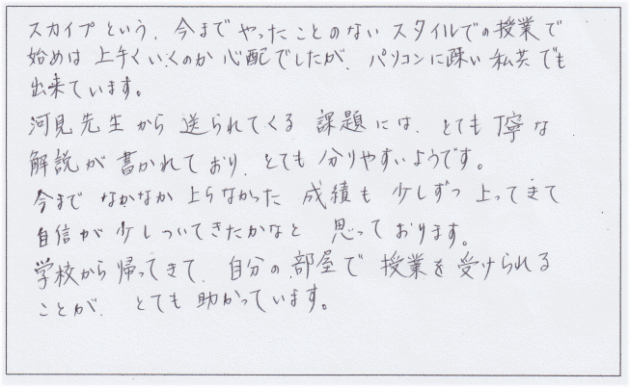 スカイプという、今までやったことのないスタイルでの授業で
始めは上手くいくのか心配でしたが、パソコンに疎い私共でも
出来ています。
河見先生から送られてくる課題には、とても丁寧な
解説が書かれており、とても分りやすいようです。
今までなかなか上らなかった成績も少しずつ上ってきて
自信が少しついてきたかなと思っております。
学校から帰ってきて、自分の部屋で授業を受けられる
ことが、とても助かっています。